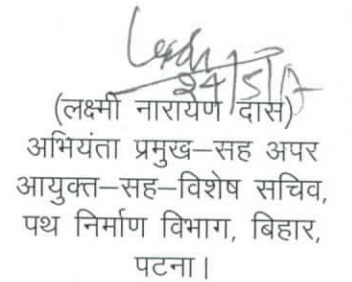 24/5/17
(लक्ष्मी नारायण दास)
अभियंता प्रमुख–सह अपर
आयुक्त–सह–विशेष सचिव,
पथ निर्माण विभाग, बिहार,
पटना।